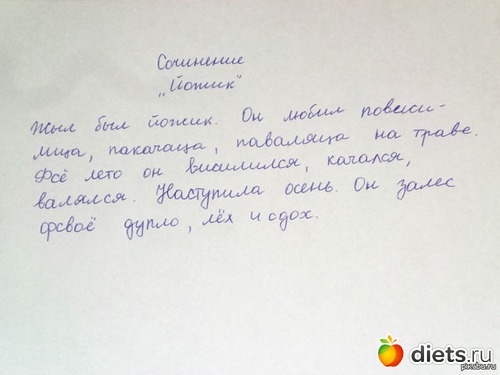 Сочинение
„Йожик"
Жыл был йожик. Он любил повиси-
лица, пакачаца, паваляца на траве.
Фсё лето он висилился, качался,
валялся. Наступила осень. Он залес
фсваё дупло, лёх и сдох.
diets.ru
pikabu.ru